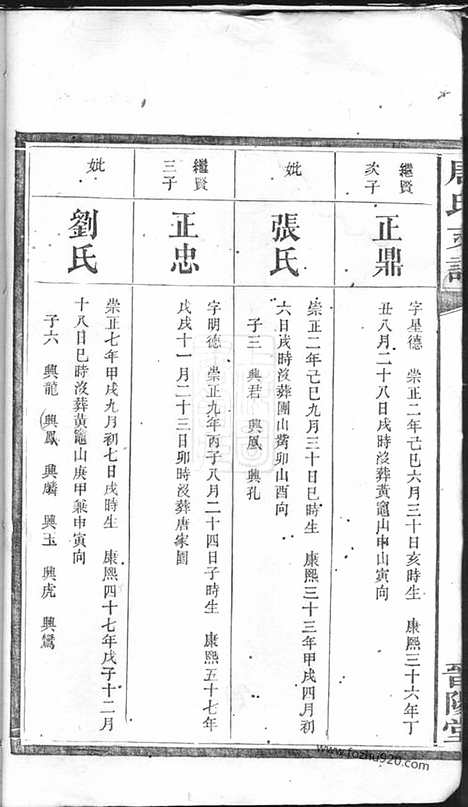 周氏支譜
晉陽堂
繼賢
次子
正鼎
字星德 崇正二年己巳六月三十日亥時生 康熙三十六年丁
丑八月二十八日戌時沒葬黃竈山申山寅向
妣
張氏
崇正二年己巳九月三十日巳時生 康熙三十三年甲戌四月初
六日戌時沒葬團山觜卯山酉向
子三 興君 興鳳 興孔
繼賢
三子
正忠
字明德 崇正九年丙子八月二十四日子時生 康熙五十七年
戊戌十一月二十三日卯時沒葬唐家園
妣
劉氏
崇正七年甲戌九月初七日戌時生 康熙四十七年戊子十二月
十八日巳時沒葬黃竈山庚甲兼申寅向
子六 興龍 興鳳 興麟 興玉 興虎 興鸞
www.fozhu920.com